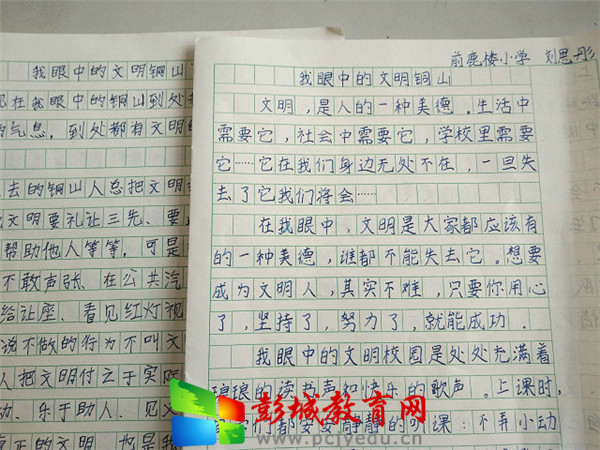 我眼中的文明铜山
现在我眼中的铜山到处
的气息，到处都有文明的
去的铜山人总把文明
文明要礼让三先、要
帮助他人等等，可是
不敢声张、在公共汽
给让座、看见红灯视
说不做的行为不叫文
人把文明付之于实际
动、乐于助人、见义
真正的文明，也是我
前鹿楼小学 刘思彤
我眼中的文明铜山
文明，是人的一种美德。生活中
需要它，社会中需要它，学校里需要
它……它在我们身边无处不在，一旦失
去了它我们将会……
在我眼中，文明是大家都应该有
的一种美德，谁都不能失去它。想要
成为文明人，其实不难，只要你用心
了，坚持了，努力了，就能成功．
我眼中的文明校园是处处充满着
琅琅的读书声和快乐的歌声。上课时，
们都安安静静的听课：不弄小动
彭城教育网
www.pcjyedu.cn